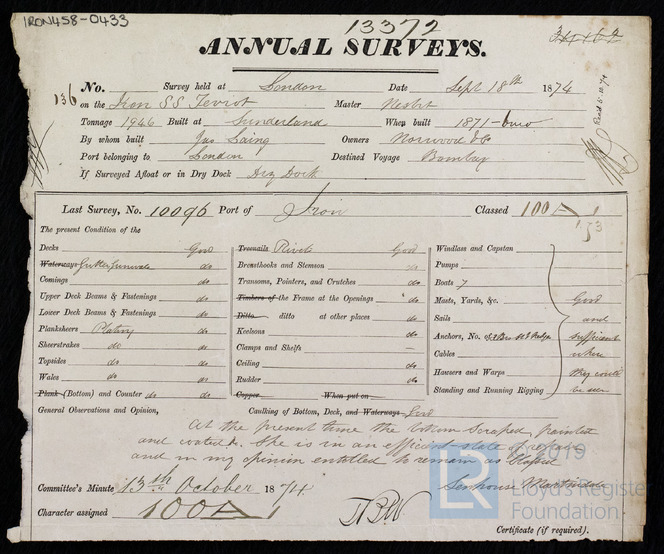 IRON458-0433
13372
ANNUAL SURVEYS.
136
No. Survey held at London Date Sept 18th 1874
on the Iron SS Teviot Master Nesbit
Tonnage 1946 Built at Sunderland When built 1871-6mo
By whom built Jas Laing Owners Norwood & Co
Port belonging to London Destined Voyage Bombay
If Surveyed Afloat or in Dry Dock Dry Dock
Last Survey, No. 10096 Port of Iron Classed 100 A 1
The present Condition of the
Decks Good
Waterways Gutter Gunwale do
Comings do
Upper Deck Beams & Fastenings do
Lower Deck Beams & Fastenings do
Planksheers Plating do
Sheerstrakes do do
Topsides do do
Wales do do
Plank (Bottom) and Counter do do
Treenails Rivets Good
Breasthooks and Stemson do
Transoms, Pointers, and Crutches do
Timbers of the Frame at the Openings do
Ditto ditto at other places do
Keelsons do
Clamps and Shelfs —
Ceiling do
Rudder do
Copper When put on
Windlass and Capstan
Pumps
Boats 7
Masts, Yards, &c. Good
Sails and
Anchors, No. sufficient
Cables when
Hawsers and Warps they could
Standing and Running Rigging be seen
General Observations and Opinion, Caulking of Bottom, Deck, and Waterways Good
At the present time the bottom scraped, painted
and coated. She is in an efficient state of repair
and in my opinion entitled to remain as Classed
Senhouse Martindale
Committee's Minute 13th October 1874
Character assigned 100 A 1
Certificate (if required).
LR
© 2019
Lloyd's Register
Foundation